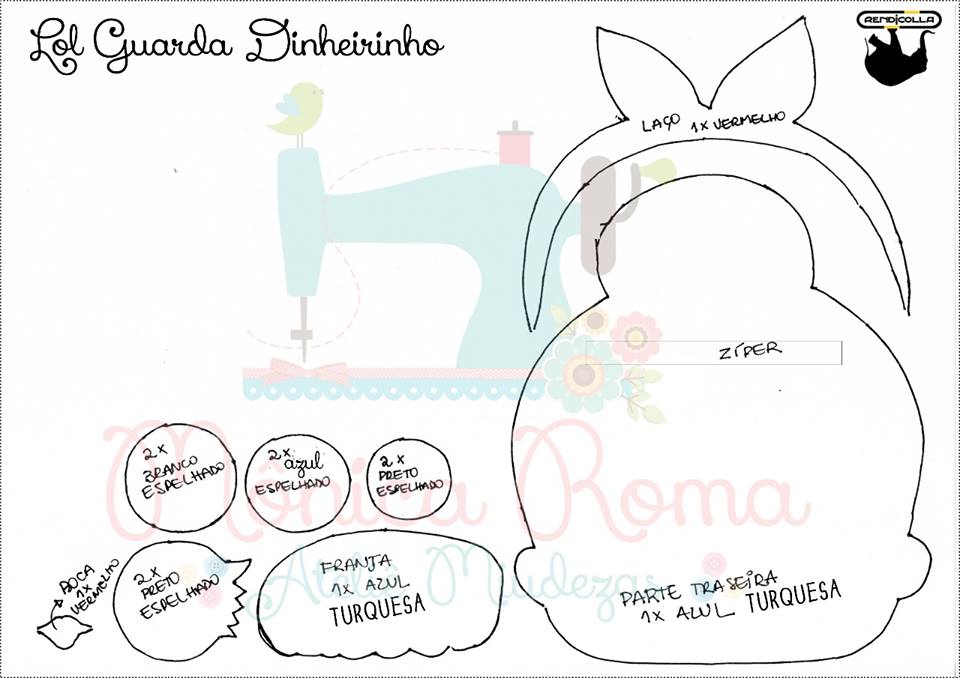 Lol Guarda Dinheirinho
RENDICOLLA
LAÇO 1X VERMELHO
ZÍPER
2X
BRANCO
ESPELHADO
2X azul
ESPELHADO
2X
PRETO
ESPELHADO
Mônica Roma
Ateliê Miudezas
BOCA
1X
VERMELHO
2X
PRETO
ESPELHADO
FRANJA
1X AZUL
TURQUESA
PARTE TRASEIRA
1X AZUL TURQUESA